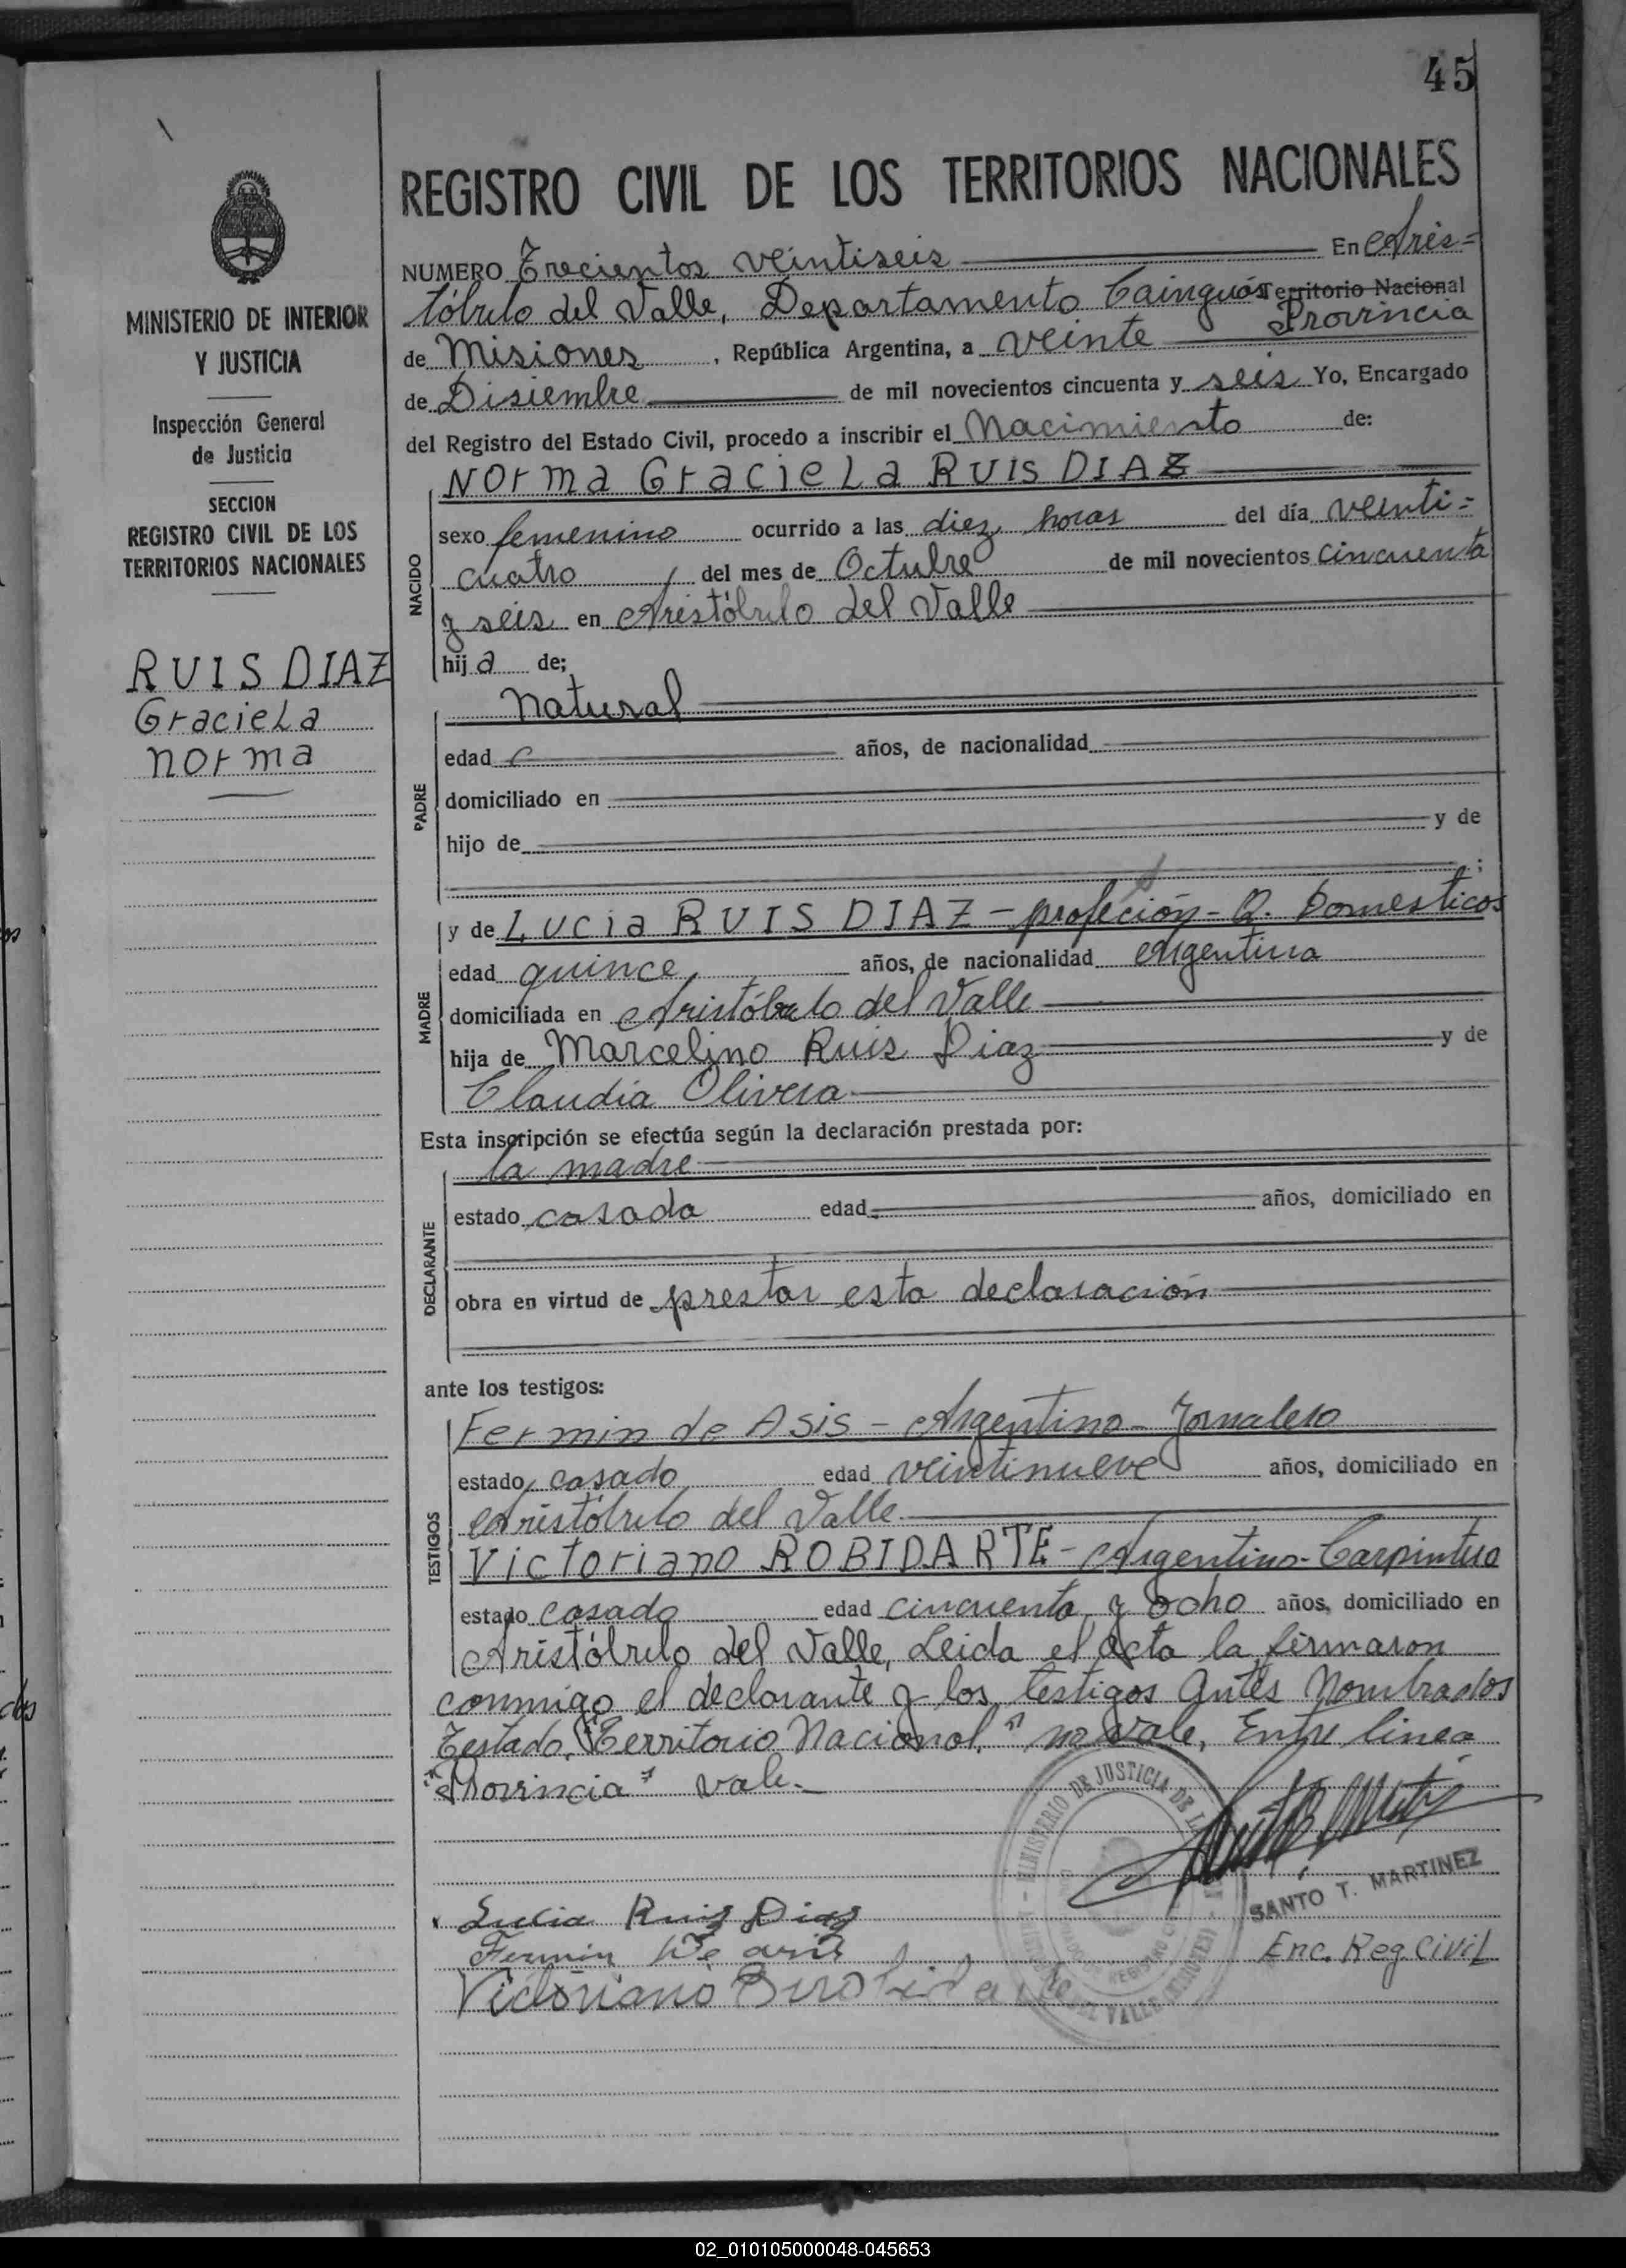 45
REGISTRO CIVIL DE LOS TERRITORIOS NACIONALES
MINISTERIO DE INTERIOR
Y JUSTICIA
Inspección General
de Justicia
SECCION
REGISTRO CIVIL DE LOS
TERRITORIOS NACIONALES
RUIS DIAZ
Graciela
Norma
NUMERO Trecientos veintiseis En Aris=
tóbulo del Valle, Departamento Cainguás Territorio Nacional
Provincia
de Misiones , República Argentina, a veinte
de Disiembre de mil novecientos cincuenta y seis Yo, Encargado
del Registro del Estado Civil, procedo a inscribir el Nacimiento de:
Norma Graciela RUIS DIAZ
NACIDO
sexo femenino ocurrido a las diez horas del día veinti=
cuatro del mes de Octubre de mil novecientos cincuenta
y seis en Aristóbulo del Valle
hij a de;
PADRE
Natural
edad años, de nacionalidad
domiciliado en
hijo de y de
;
MADRE
y de Lucia RUIS DIAZ - profeción - Q. Domesticos
edad quince años, de nacionalidad Argentina
domiciliada en Aristóbulo del Valle
hija de Marcelino Ruis Diaz y de
Claudia Olivera
Esta inscripción se efectúa según la declaración prestada por:
DECLARANTE
la madre
estado casada edad años, domiciliado en
obra en virtud de prestar esta declaración
ante los testigos:
TESTIGOS
Fermin de Asis - Argentino - Jornalero
estado casado edad veintinueve años, domiciliado en
Aristóbulo del Valle
Victoriano ROBIDARTE - Argentino - Carpintero
estado casado edad cincuenta y ocho años, domiciliado en
Aristóbulo del Valle, Leida el acta la firmaron
conmigo el declarante y los testigos antes nombrados
Testado, "Territorio Nacional," no vale, Entre linea
"Provincia" vale.-
MINISTERIO DE JUSTICIA DE
SANTO T. MARTINEZ
Enc. Reg Civil
Lucia Ruis Diaz
Fermin De asis
Victoriano
02_010105000048-045653